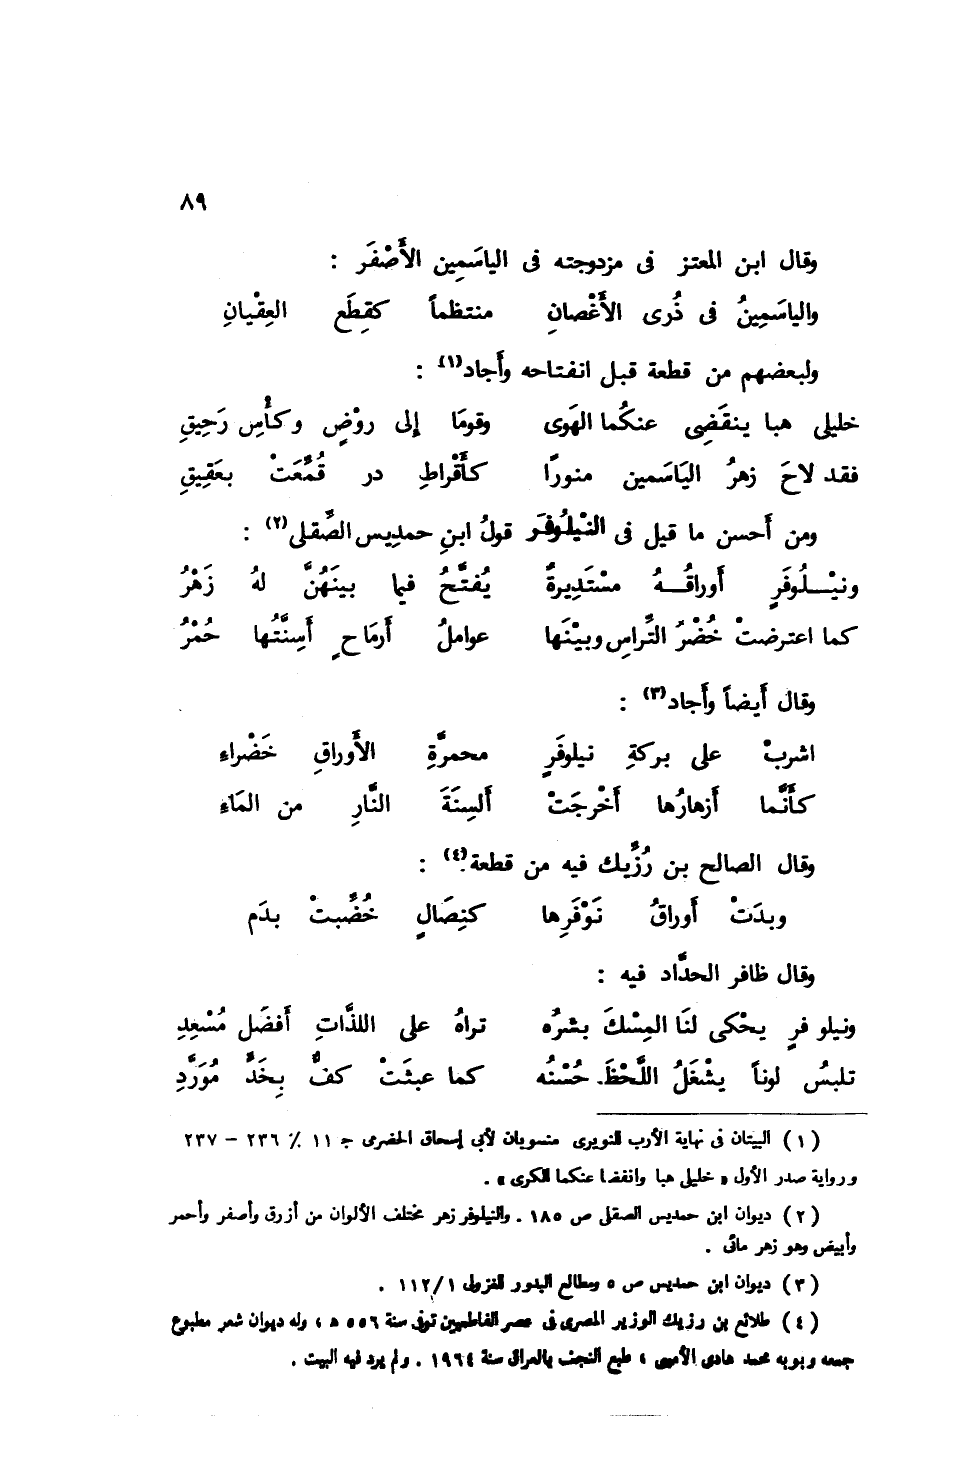 ٨٩
وقال ابن المعتز فى مزدوجته فى الياسَمِين الأَصْفَر :
والياسَمِينُ فى ذُرى الأَغْصانِ منتظماً كقِطَعِ العِقْيانِ
ولبعضهم من قطعة قبل انفتاحه وأَجاد(١) :
خليلى هبا ينقَضِى عنكُما الهَوى وقومَا إلى روْضٍ وكأْسِ رَحِيقِ
فقد لاحَ زهرُ اليَاسَمين منورًا كأَقْراطِ در قُمِّعَتْ بعَقِيقِ
ومن أَحسن ما قيل فى النَّيْلُوفَر قولُ ابنِ حمدِيس الصِّقلى(٢) :
ونيْلُوفَرٍ أَوراقُهُ مسْتَدِيرةٌ يُفتَّحُ فيما بينَهُنَّ لهُ زَهْرُ
كما اعترضتْ خُضْرُ التِّراسِ وبيْنَها عواملُ أَرمَاحٍ أَسِنَّتُها حُمْرُ
وقال أَيضاً وأَجاد(٣) :
اشربْ على بركةِ نيلوفَرٍ محمرَّةِ الأَوراقِ خَضْراءِ
كأَنَّما أَزهارُها أَخْرجَتْ أَلسِنَةَ النَّارِ من المَاءِ
وقال الصالح بن رُزِّيك فيه من قطعة(٤) :
وبدَتْ أَوراقُ نَوْفَرِها كنِصَالٍ خُضِّبتْ بدَمِ
وقال ظافر الحدَّاد فيه :
ونيلوفرٍ يحْكى لنَا المِسْكَ بشرُه تراهُ على اللذَّاتِ أَفضَل مُسْعِدِ
تلبسُ لوناً يشْغَلُ اللَّحْظَ حُسْنُه كما عبثَتْ كفٌّ بِخَدٍّ مُوَرَّدِ
(١) البيتان فى نهاية الأرب للنويرى منسوبان لأبى إسحاق الحضرى ج ١١ / ٢٣٦ – ٢٣٧
ورواية صدر الأول « خليلى هبا وانفضا عنكما الكرى » .
(٢) ديوان ابن حمديس الصقلى ص ١٨٥ . والنيلوفر زهر مختلف الألوان من أزرق وأصفر وأحمر
وأبيض وهو زهر مائى .
(٣) ديوان ابن حمديس ص ٥ ومطالع البدور للغزولى ١١٢/١ .
(٤) طلائع بن رزيك الوزير المصرى فى عصر الفاطميين توفى سنة ٥٥٦ هـ ، وله ديوان شعر مطبوع
جمعه وبوبه محمد هادى الأمينى ، طبع النجف بالعراق سنة ١٩٦٤ . ولم يرد فيه البيت .